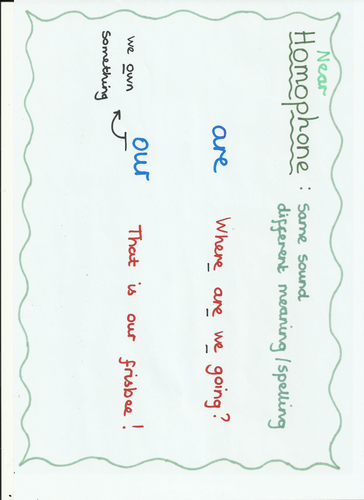 Near
Homophone: Same sound
different meaning/spelling
are Where are we going?
our That is our frisbee!
we own
something